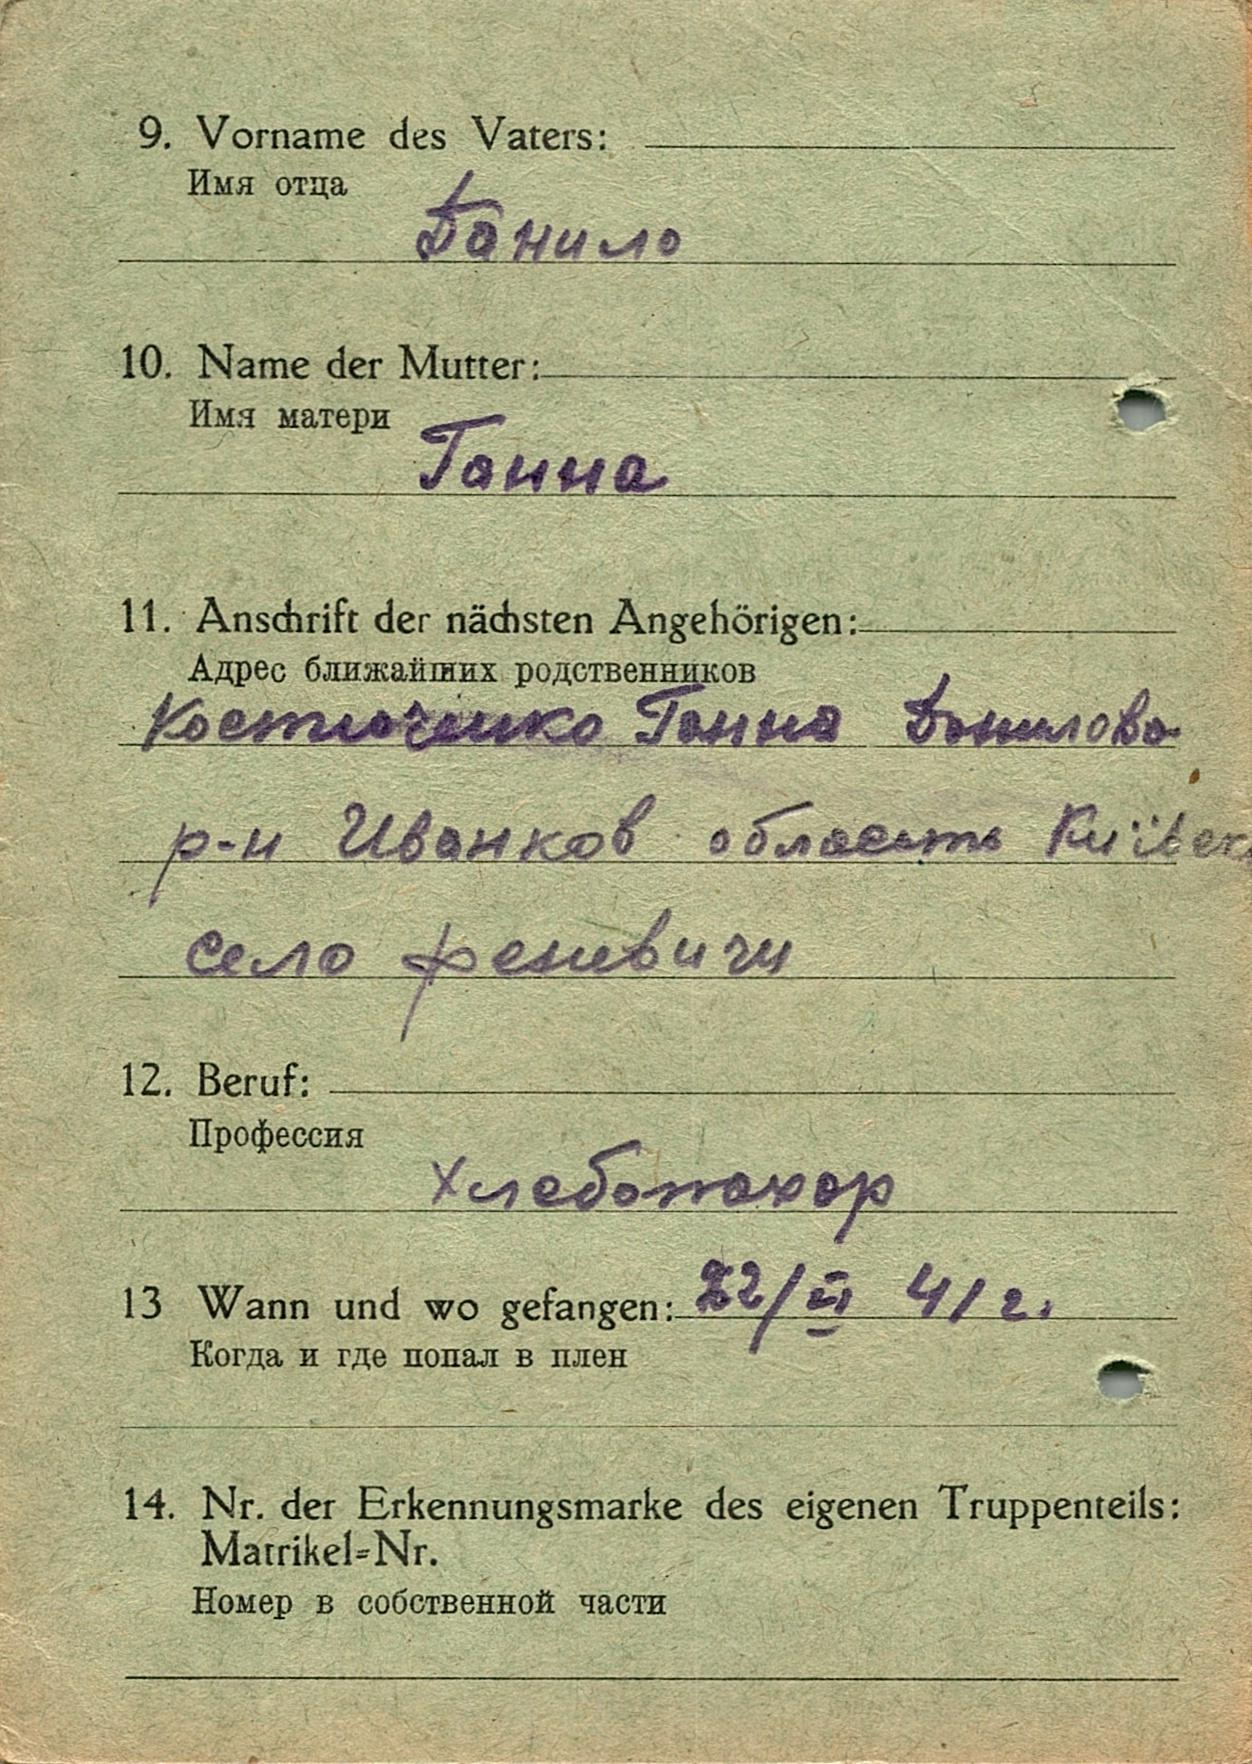 9. Vorname des Vaters:
Имя отца
Данило
10. Name der Mutter:
Имя матери
Ганна
11. Anschrift der nächsten Angehörigen:
Адрес ближайших родственников
Костюченко Ганна Данилова
р-н Иванков область Київск
село
12. Beruf:
Профессия
Хлебопахар
13 Wann und wo gefangen: 22/ 41 г.
Когда и где попал в плен
14. Nr. der Erkennungsmarke des eigenen Truppenteils:
Matrikel=Nr.
Номер в собственной части